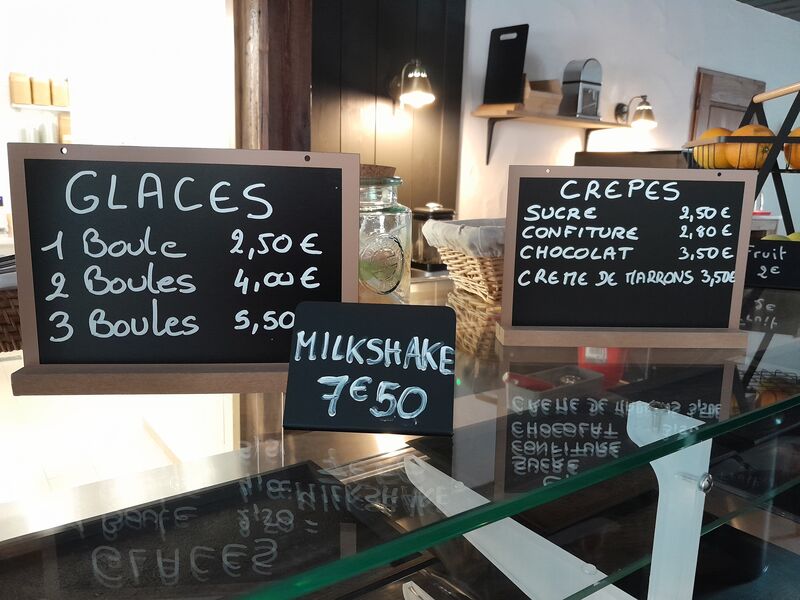 GLACES
1 Boule 2,50 €
2 Boules 4,00 €
3 Boules 5,50
MILKSHAKE
7€50
CRÊPES
SUCRE 2,50€
CONFITURE 2,80€
CHOCOLAT 3,50€
CREME DE MARRONS 3,50€
Fruit
2€